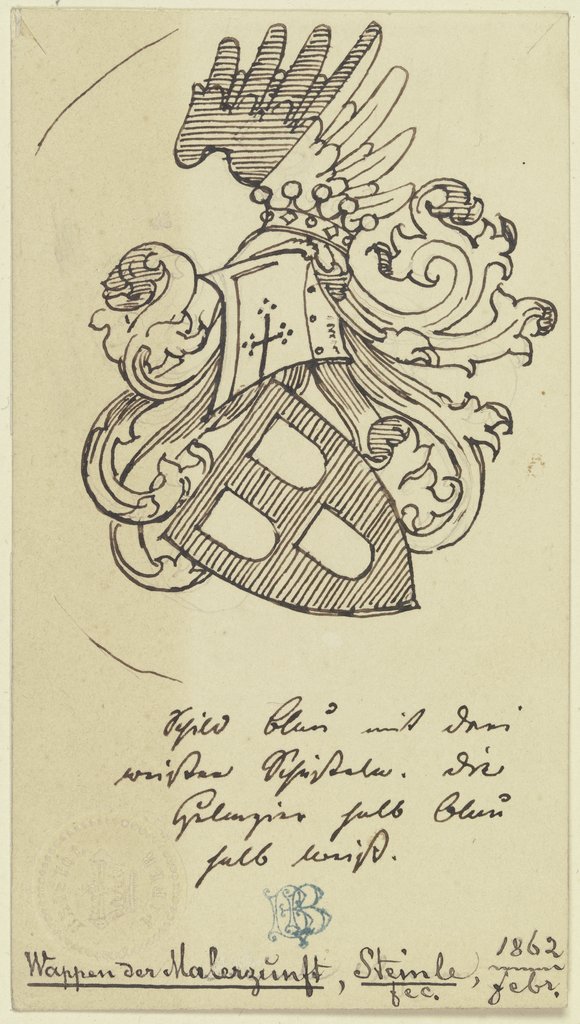 Schild blau mit drei
weißen Schilden. die
Helmzier halb blau
halb weiß.
Wappen der Malerzunft, Steinle, 1862
fec. Febr.